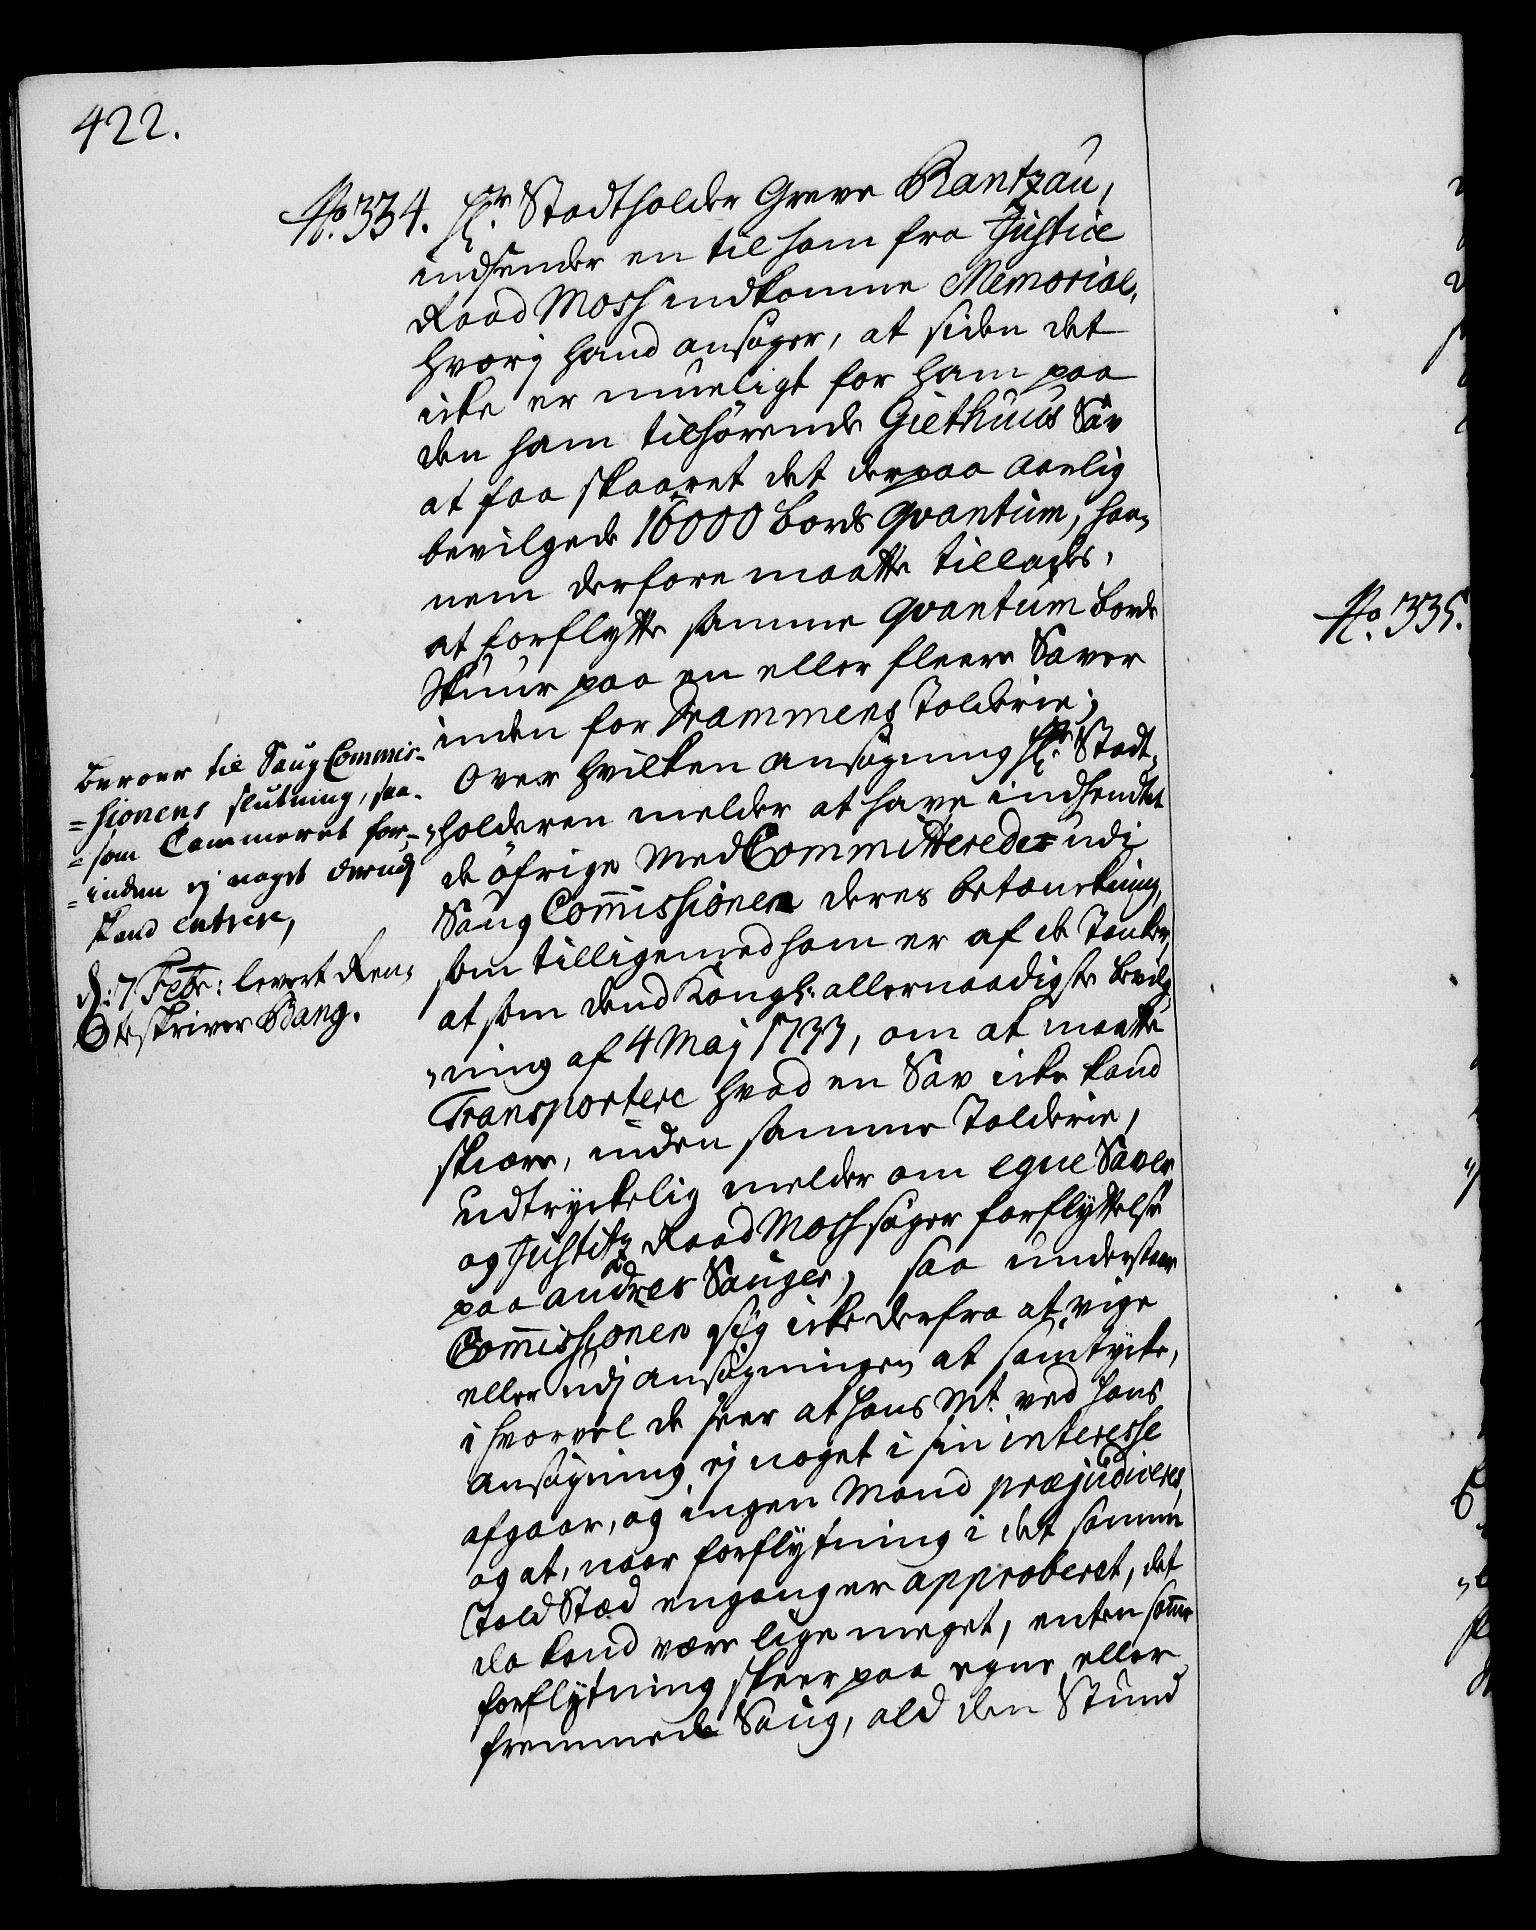 422.
No. 334. Hr. Stadtholder Greve Rantzau,
indsender en til ham fra Justice
Raad Mosh indkomne Memorial,
hvorj hand ansøger, at siden det
icke er mueligt for ham paa
den ham tilhørende Giethuus Sav
at faa skaaret det derpaa aarlig
bevilgede 16000 bords qvantum, han-
nem derfore maatte tillades,
at forflytte samme qvantum bords
Skuur paa en eller fleere Saver
inden for Drammens Tolderie;
Over hvilken ansøgning Hr. Stadt-
holderen melder at have indhendtet
de øfrige Med Committeredes udi
Saug Commissionen deres betænckning,
som tilligemed ham er af de Tancker,
at som dend Kongl: allernaadigste bevilg-
ning af 4 Maj 1733, om at maatte
Transportere hvad en Sav icke kand
skiære, inden samme Tolderie,
udtryckelig melder om egne Saver
og Justitz Raad Mosh søger forflyttelse
paa andres Sauger, saa understaar
Commissionen sig icke derfra at vige
eller udj ansøgningen at samtycke,
i hvorvel de seer at Hans Mt. ved hans
ansøgning ej noget i sin interesse
afgaar, og ingen Mand præjudiceres,
og at, naar forflytning i det samme
Told Stæd engang er approberet, det
da kand være lige meget, enten samme
forflytning skeer paa egne eller
fremmede Saug, ald den Stund
beroer til Saug Commis-
sionens slutning, saa-
som Cammeret for-
inden ej noget derudj
kand entrere,
d: 7 Febr: levert Ren-
teskriver Bang.
No. 335.